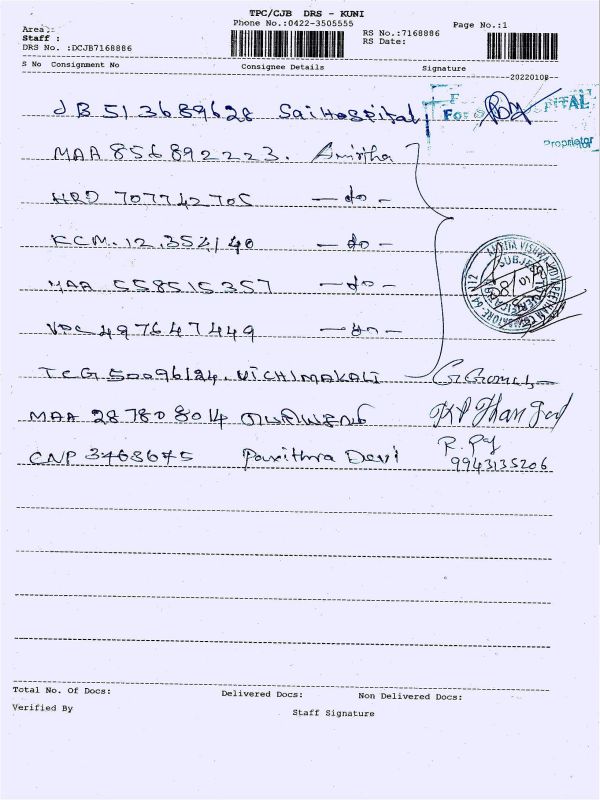 TPC/CJB DRS - KUNI
Phone No.:0422-3505555
Page No.:1
Area:
Staff :
DRS No. :DCJB7168886
RS No.:7168886
RS Date:
S No Consignment No Consignee Details Signature
20220108
JB 513689628 Sai Hospital
For HOSPITAL
Proprietor
MAA 856892223. Amirtha
HRD 707742705 - do -
KCM. 12.352140 - do -
MAA 558515357 - do -
VPC 497647449 - do -
TCG 50096124. VICHIMAKALI
MAA 287808014
CNP 3768675 Pavithra Devi R.
9943135206
Total No. Of Docs: Delivered Docs: Non Delivered Docs:
Verified By Staff Signature